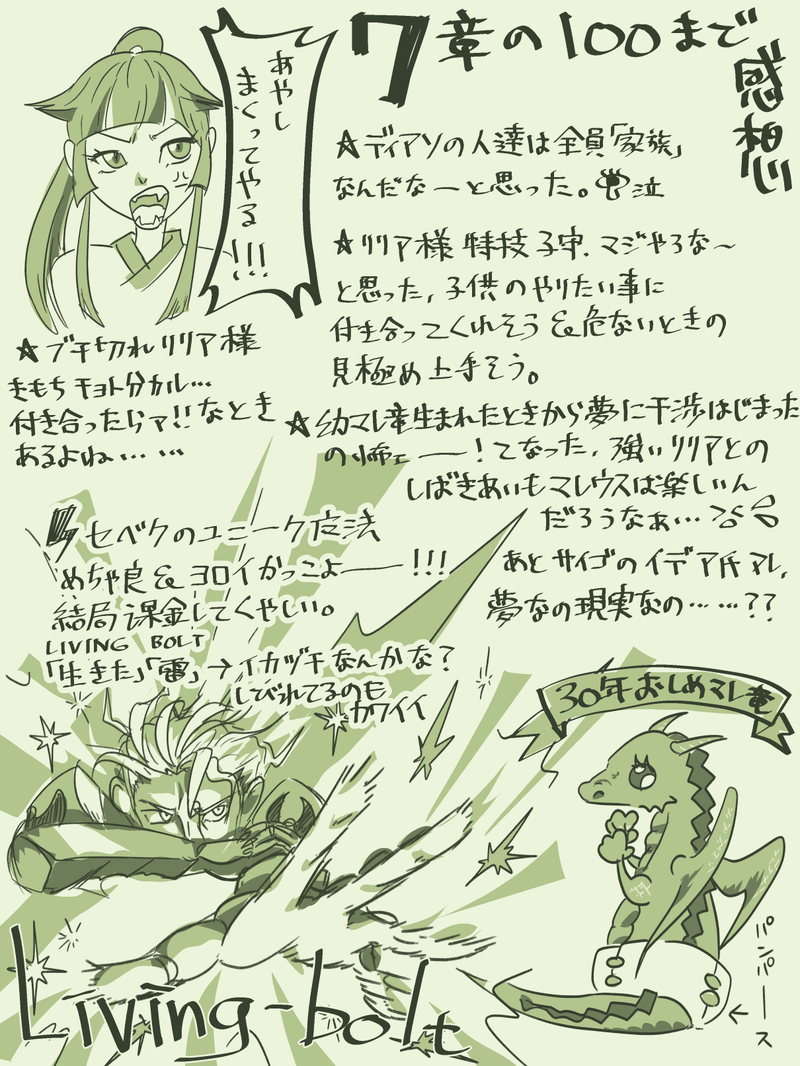 7章の100まで
感想
あやし
まくってやる!!!
☆ディアソの人達は全員「家族」
なんだなーと思った。泣
☆リリア様 特技 子守、マジやろな〜
と思った、子供のやりたい事に
付き合ってくれそう&危ないときの
見極め上手そう。
☆ブチ切れリリア様
きもちチョト分カル…
付き合ったらァ!!なとき
あるよね……
☆幼マレ竜生まれたときから夢に干渉はじまった
の怖ェ――!てなった、強いリリアとの
しばきあいもマレウスは楽しいん
だろうなぁ…
あとサイゴのイデア氏アレ、
夢なの現実なの……??
セベクのユニーク魔法
めちゃ良&ヨロイかっこよ――!!!
結局課金してくやしい。
LIVING BOLT
「生きた」「雷」→イカヅチなんかな?
しびれてるのも
カワイイ
30年おしめマレ竜
パンパース
Living-bolt